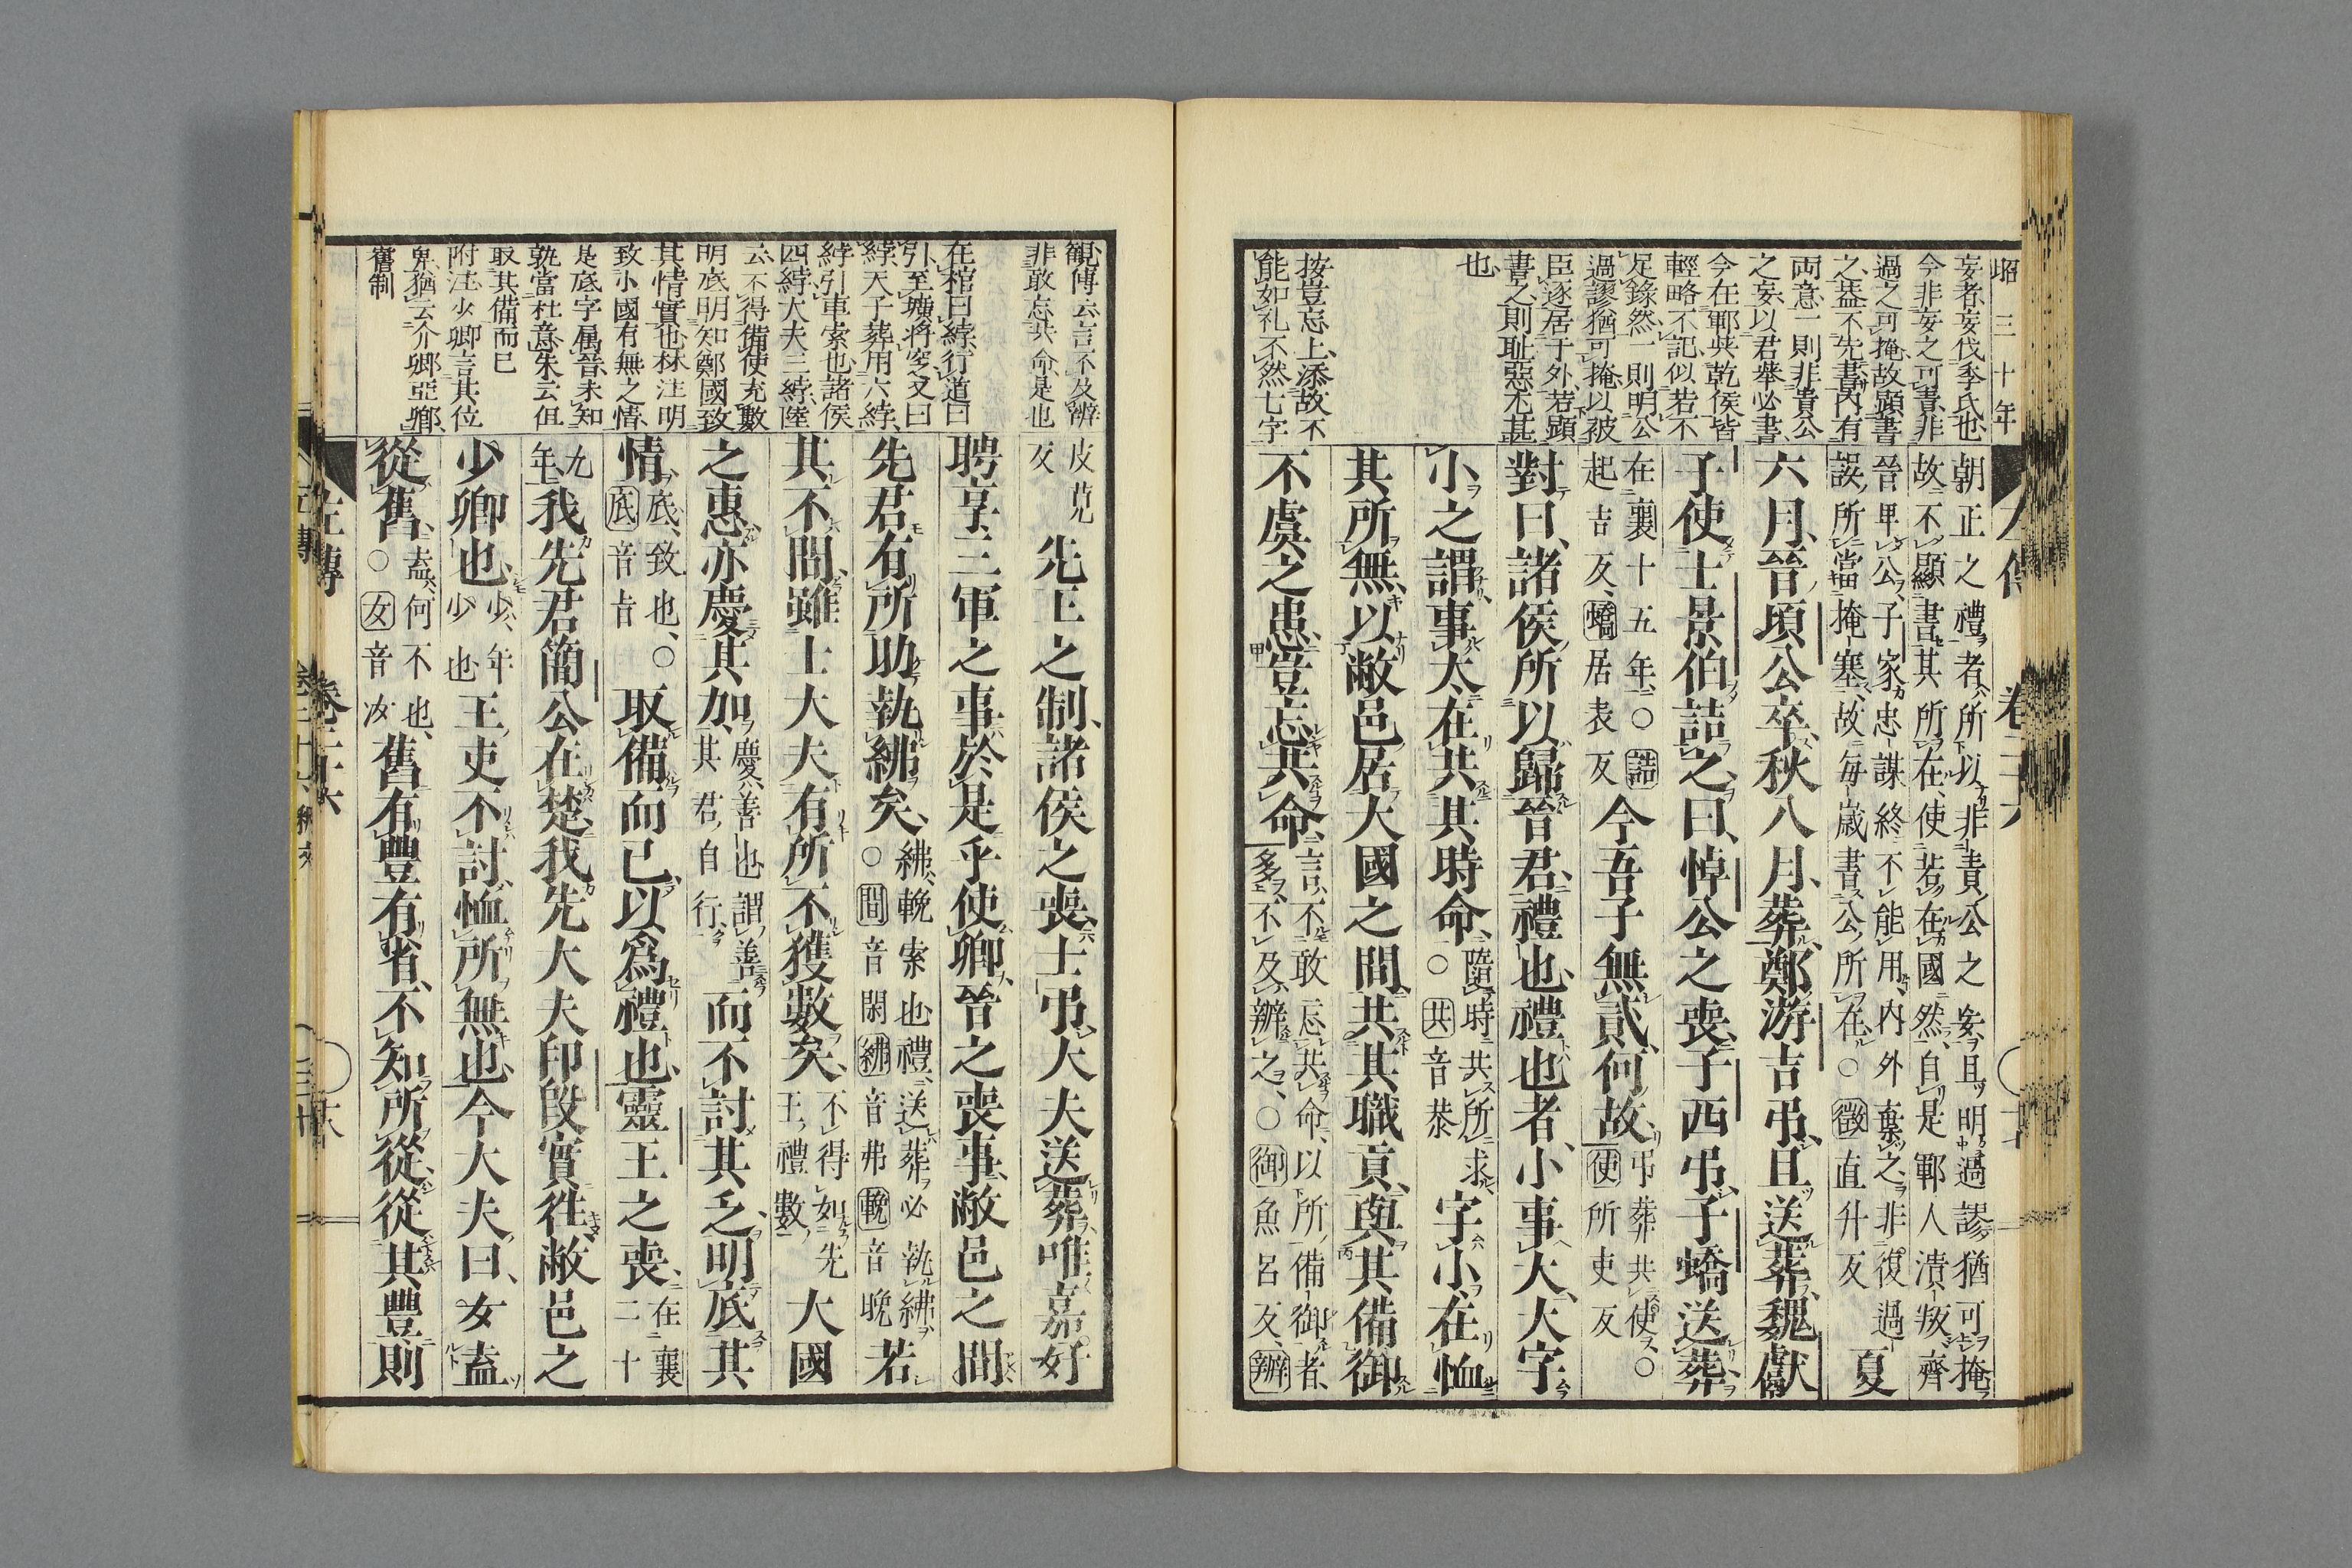 昭三十年
妄者妄伐季氏也
今非妄之可書非
過之可掩故顕書
之盖不先書内有
両意一則非責公
之妄以君舉必書
今在鄆與乾侯皆
輕略不記似若不
足錄然一則明公
過謬猶可掩以被
臣逐居于外若顕
書之則耻惡尤甚
也
按豈忘上添故不
能如礼不然七字
朝正之禮者所以非責公之妄且明過謬猶可掩
故不顯書其所在使若在國然自是鄆人潰叛齊
晉卑公子家忠謀終不能用内外棄之非復過
誤所當掩塞故每歲書公所在○徵直升反
夏
六月晉頃公卒秋八月葬鄭游吉弔且送葬魏獻
子使士景伯詰之曰悼公之喪子西弔子蟜送葬
在襄十五年○詰
起吉反蟜居表反
今吾子無貳何故
弔葬共使○
使所吏反
對曰諸侯所以歸晉君禮也禮也者小事大大字
小之謂事大在共其時命
隨時共所求
○共音恭
字小在恤
其所無以敝邑居大國之間共其職貢與其備御
不虞之患豈忘共命
言不敢忘共命以所備御者
多不及辦之○御魚呂反辦
覩傳云言不及辦
非敢忘共命是也
在棺曰綍行道曰
引至壙將窆又曰
綍天子葬用六綍
綍引車索也諸侯
四綍大夫三綍陸
云不得備使充數
明底明知鄭國致
其情實也林注明
致小國有無之情
是底字属晉未知
孰當杜意朱云但
取其備而已
附注少卿言其位
卑猶云介卿亞卿
舊制
皮莧
反
先王之制諸侯之喪士弔大夫送葬唯嘉好
聘享三軍之事於是乎使卿晉之喪事敝邑之間
先君有所助執紼矣
紼輓索也禮送葬必執紼
○間音閑紼音弗輓音晚
若
其不間雖士大夫有所不獲數矣
不得如先
王禮數
大國
之惠亦慶其加
慶善也謂善
其君自行
而不討其乏明底其
情
底致也○
底音旨
取備而已以爲禮也靈王之喪
在襄
二十
九
年
我先君簡公在楚我先大夫印段實往敝邑之
少卿也
少年
少也
王吏不討恤所無也今大夫曰女盍
從舊
盍何不也
○女音汝
舊有豐有省不知所從從其豐則
左傳
卷二十六